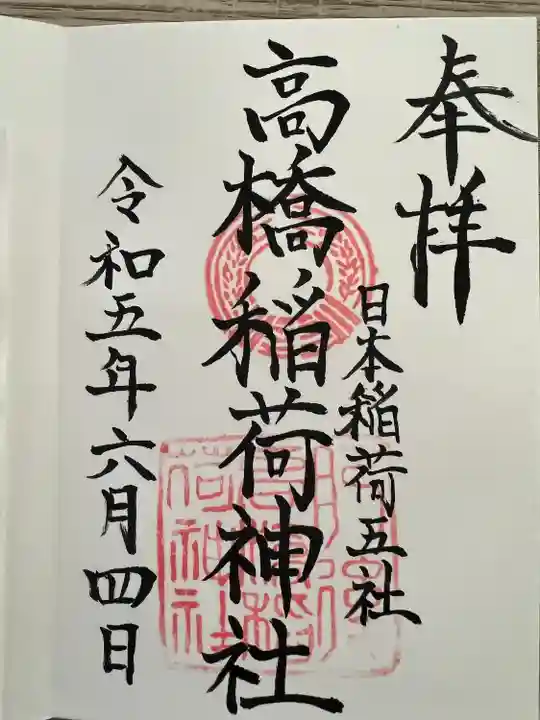 奉拝
日本稲荷五社
高橋稲荷神社
令和五年六月四日